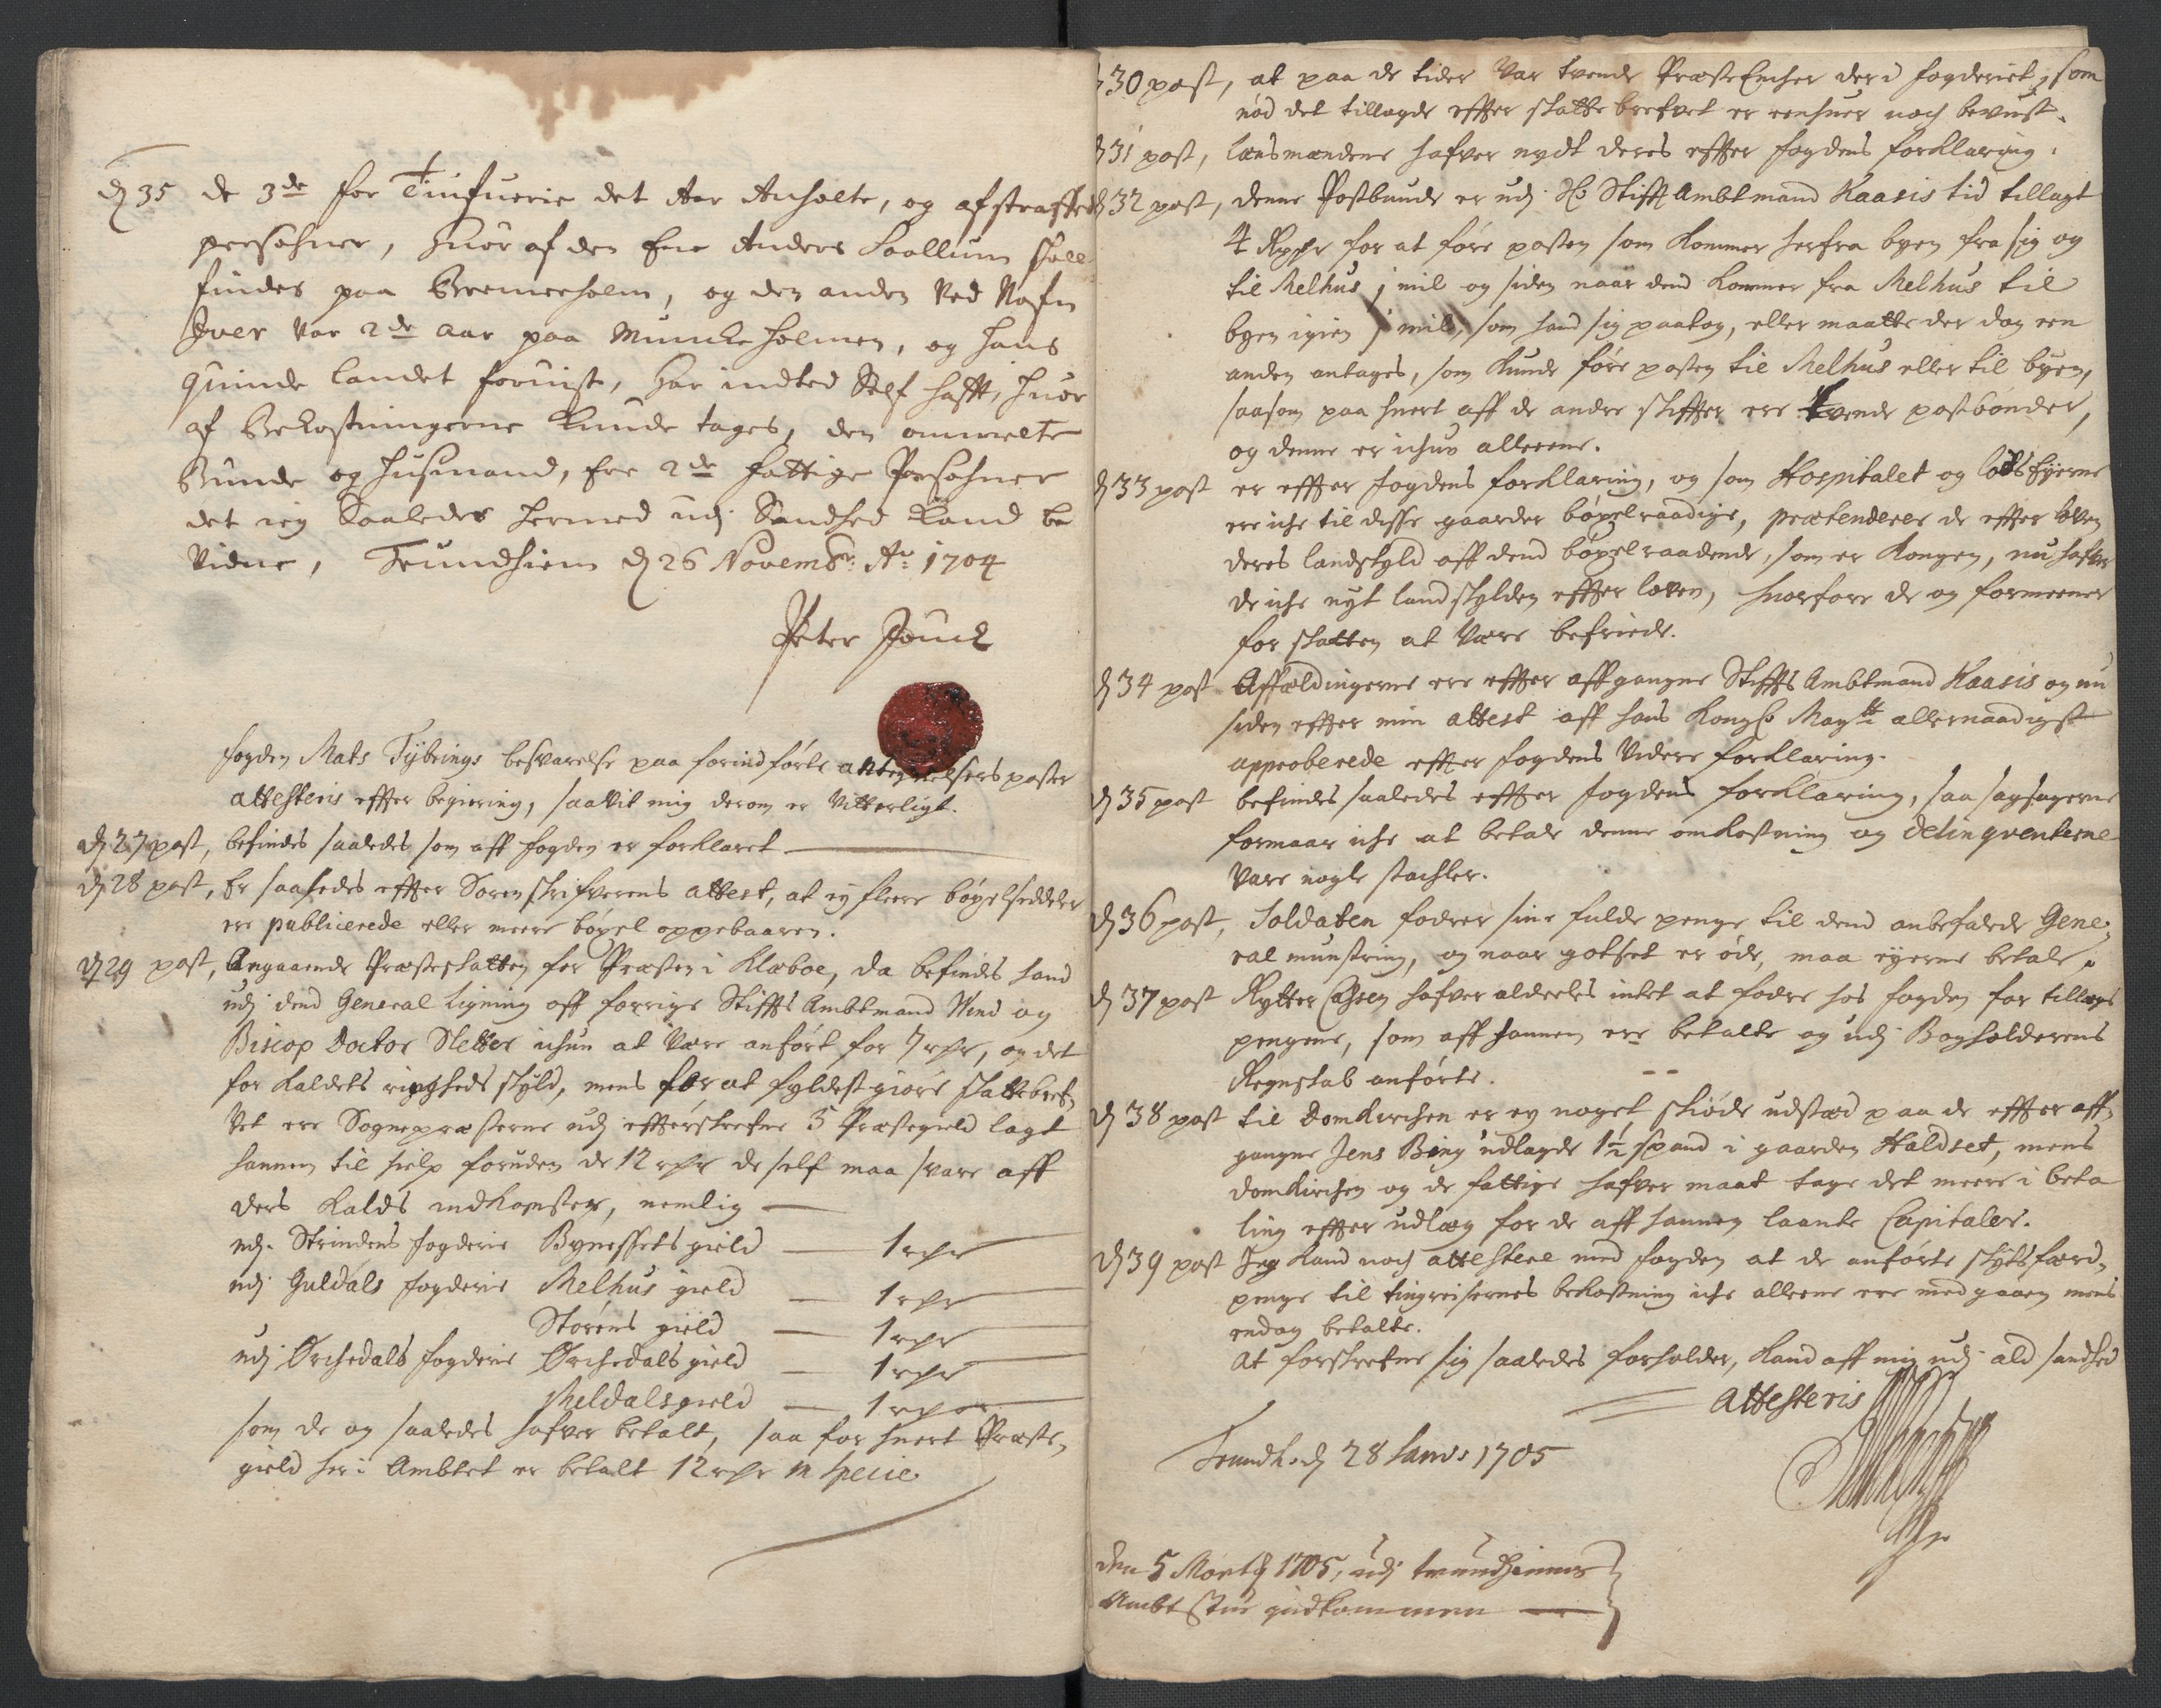 d 35 de 3de for Tiufuerie det Aar Anholte, og afstraffede
persohner, huor af den Ene Anders Soollum skall
findes paa Bremerholm, og den anden Ved Nafn
Iver var 2de aar paa Munckholmen, og hans
quinde landet foruist, har indted Self hafft, huor
af Bekostningerne kunde tages, den ommelte
Bunde og husmand, Ere 2de fattige Persohner
det ieg Saaledes hermed udj Sandhed kand be
vidne, Trundhiem d 26 Novembr: Ao: 1704
Peter
fogden Mats Tybrings besvarelse paa forindførte antegnelsers poster
attesteris effter begiering, saavit mig derom er vitterligt.
d 27 post, befindes saaledes som aff fogden er forklaret
d 28 post, Er saaledes effter Sorenskrifverens attest, at ej fleere bøxelseddeler
ere publicerede eller meere bøxel oppebaaren.
d 29 post, Angaaende Præsteskatten for Præsten i Klæboe, da befindes hand
udj dend General Ligning aff forrige Stiffts Ambtmand Wind og
Biscop Doctor Sletter ichun at være anført for 7 rdr, og det
for kaldets ringheds skyld, mens for at fyldestgiøre skattebref,
vet ere Sognepræsterne udj effterskrefne 5 Præstegield lagt
hannem til hielp foruden de 12 rdr de self maa svare aff
ders kalds indkomster, nemlig
udj. Strindens fogderie Bynessets gield 1 rdr
udj Guldals fogderie Melhus gield 1 rdr
Størens gield 1 rdr
udj Orchedals fogderie Orchedals gield 1 rdr
Meldals gield 1 rdr
som de og saaledes hafver betalt, saa for huert Præste,
gield her i Ambtet er betalt 12 rdr in specie.
d 30 post, at paa de tider var tvende Præste Encher der i fogderiet, som
nød det tillagde effter skatte brefvet er eenhuer noch bevust.
d 31 post, Lænsmændene hafver nydt deres effter fogdens forklaring.
d 32 post, denne Postbunde er udj Hr Stifft Ambtmand Kaasis tid tillagt
4 Rixdr for at føre posten som kommer herfra byen fra sig og
til Melhus j mil og siden naar dend kommer fra Melhus til
byen igien j mil, som hand sig paatog, eller maatte der dog een
anden antages, som kunde føre posten til Melhus eller til byen,
saasom paa huert aff de andre skiffter ere tvende postbønder,
og denne er ichun alleene.
d 33 post er effter fogdens forklaring, og som Hospitalet og lods Eyerne
ere iche til disse gaarder bøxelraadige, prætenderer de effter loven
deres landskyld aff dend bøxelraadende, som er Kongen, nu hafver
de iche nyt landskylden effter loven, huorfore de og formeener
for skatten at være befriede.
d 34 post Affældingerne ere effter affgangne Stiffts Ambtmand Kaasis og nu
siden effter min attest aff hans Kongl Maytt allernaadigst
approberede effter fogdens videre forklaring.
d 35 post befindes saaledes effter fogdens forklaring, saa sagsøgerne
formaar iche at betale denne omkostning og delinqventerne
vare nogle stachler.
d 36 post, Soldaten fodrer sine fulde penge til dend anbefalede Gene,
ral munstring, og naar godset er øde, maa eyerne betale.
d 37 post Rytter Cassen hafver aldeeles intet at fodre hos fogden for tillægs
pengene, som aff hannem ere betalte og udj Bogholderens
Regnskab anførte.
d 38 post til Domkirchen er ey noget skiøde udstæd paa de effter aff,
gangne Jens Bing udlagde 1½ spand i gaarden Haldset, mens
domkirchen og de fattige hafver maat tage det meere i beta
ling effter udlæg for de aff hannem laante Capitaler.
d 39 post Jeg kand noch attestere med fogden at de anførte skydsfærd,
penge til tingreisernes bekostning iche alleene ere medgaaen mens
endog betalte.
At forskrefne sig saaledes forholder, kand aff mig udj ald sandhed
attesteris
Trundh. d 28 Janv: 1705
den 5 Marty 1705, udj trundhiems
Ambt Stue indkommen